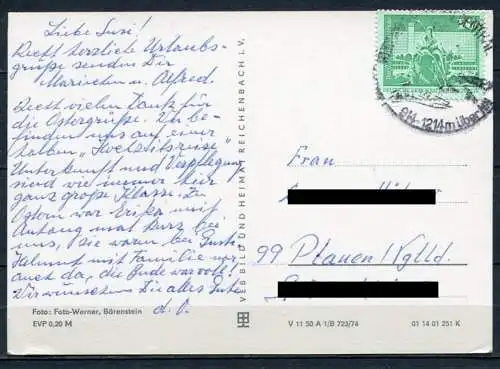 Liebe Susi!
Recht herzliche Urlaubs-
grüße senden Dir
Mariechen u. Alfred.
Recht vielen Dank für
die Ostergrüße. Wir be-
finden uns auf einer
tollen „Hochzeitsreise“
Unterkunft und Verpflegung
sind wie immer hier
ganz große Klasse. Zu
Ostern war Erika mit
Anhang mal kurz bei
uns, sie waren bei Gustl.
Helmut mit Familie war
auch da, die Bude war voll!
Wir wünschen Dir alles Gute
d. O.
Foto: Foto-Werner, Bärenstein
EVP 0,20 M
VEB BILD UND HEIMAT REICHENBACH I. V.
Frau
99 Plauen / Vgtld.
V 11 50 A 1/B 723/74
01 14 01 251 K
1214m über